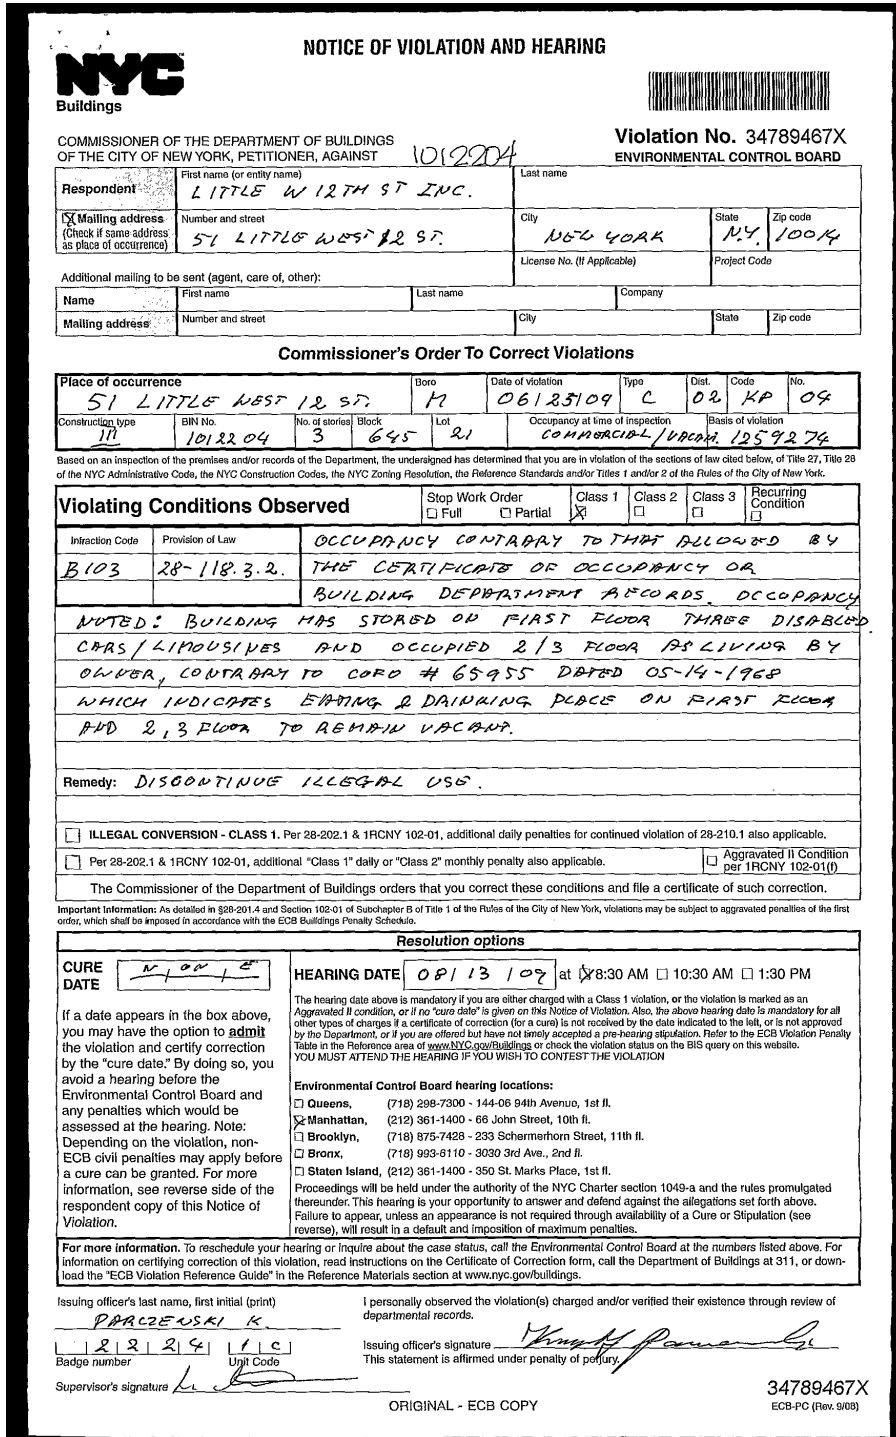 NOTICE OF VIOLATION AND HEARING
NYC
Buildings
COMMISSIONER OF THE DEPARTMENT OF BUILDINGS
OF THE CITY OF NEW YORK, PETITIONER, AGAINST 1012204
Violation No. 34789467X
ENVIRONMENTAL CONTROL BOARD
Respondent First name (or entity name) Last name
LITTLE W 12TH ST INC.
Mailing address Number and street City State Zip code
(Check if same address as place of occurrence) 51 LITTLE WEST 12 ST. NEW YORK N.Y. 10014
License No. (If Applicable) Project Code
Additional mailing to be sent (agent, care of, other):
Name First name Last name Company
Mailing address Number and street City State Zip code
Commissioner's Order To Correct Violations
Place of occurrence Boro Date of violation Type Dist. Code No.
51 LITTLE WEST 12 ST. M 06/25/09 C 02 KP 04
Construction type BIN No. No. of stories Block Lot Occupancy at time of inspection Basis of violation
III 1012204 3 645 21 COMMERCIAL/VACAN. 1259274
Based on an inspection of the premises and/or records of the Department, the undersigned has determined that you are in violation of the sections of law cited below, of Title 27, Title 28
of the NYC Administrative Code, the NYC Construction Codes, the NYC Zoning Resolution, the Reference Standards and/or Titles 1 and/or 2 of the Rules of the City of New York.
Violating Conditions Observed Stop Work Order Full Partial Class 1 Class 2 Class 3 Recurring Condition
Infraction Code Provision of Law OCCUPANCY CONTRARY TO THAT ALLOWED BY
B103 28-118.3.2. THE CERTIFICATE OF OCCUPANCY OR
BUILDING DEPARTMENT RECORDS. OCCUPANCY
NOTED: BUILDING HAS STORED ON FIRST FLOOR THREE DISABLED
CARS/LIMOUSINES AND OCCUPIED 2/3 FLOOR AS LIVING BY
OWNER, CONTRARY TO COFO # 65955 DATED 05-14-1968
WHICH INDICATES EATING & DRINKING PLACE ON FIRST FLOOR
AND 2,3 FLOOR TO REMAIN VACANT.
Remedy: DISCONTINUE ILLEGAL USE.
ILLEGAL CONVERSION - CLASS 1. Per 28-202.1 & 1RCNY 102-01, additional daily penalties for continued violation of 28-210.1 also applicable.
Per 28-202.1 & 1RCNY 102-01, additional "Class 1" daily or "Class 2" monthly penalty also applicable. Aggravated II Condition per 1RCNY 102-01(f)
The Commissioner of the Department of Buildings orders that you correct these conditions and file a certificate of such correction.
Important Information: As detailed in §28-201.4 and Section 102-01 of Subchapter B of Title 1 of the Rules of the City of New York, violations may be subject to aggravated penalties of the first
order, which shall be imposed in accordance with the ECB Buildings Penalty Schedule.
Resolution options
CURE DATE NONE
If a date appears in the box above,
you may have the option to admit
the violation and certify correction
by the "cure date." By doing so, you
avoid a hearing before the
Environmental Control Board and
any penalties which would be
assessed at the hearing. Note:
Depending on the violation, non-
ECB civil penalties may apply before
a cure can be granted. For more
information, see reverse side of the
respondent copy of this Notice of
Violation.
HEARING DATE 08/13/09 at 8:30 AM 10:30 AM 1:30 PM
The hearing date above is mandatory if you are either charged with a Class 1 violation, or the violation is marked as an
Aggravated II condition, or if no "cure date" is given on this Notice of Violation. Also, the above hearing date is mandatory for all
other types of charges if a certificate of correction (for a cure) is not received by the date indicated to the left, or is not approved
by the Department, or if you are offered but have not timely accepted a pre-hearing stipulation. Refer to the ECB Violation Penalty
Table in the Reference area of www.NYC.gov/Buildings or check the violation status on the BIS query on this website.
YOU MUST ATTEND THE HEARING IF YOU WISH TO CONTEST THE VIOLATION
Environmental Control Board hearing locations:
Queens, (718) 298-7300 - 144-06 94th Avenue, 1st fl.
Manhattan, (212) 361-1400 - 66 John Street, 10th fl.
Brooklyn, (718) 875-7428 - 233 Schermerhorn Street, 11th fl.
Bronx, (718) 993-6110 - 3030 3rd Ave., 2nd fl.
Staten Island, (212) 361-1400 - 350 St. Marks Place, 1st fl.
Proceedings will be held under the authority of the NYC Charter section 1049-a and the rules promulgated
thereunder. This hearing is your opportunity to answer and defend against the allegations set forth above.
Failure to appear, unless an appearance is not required through availability of a Cure or Stipulation (see
reverse), will result in a default and imposition of maximum penalties.
For more information. To reschedule your hearing or inquire about the case status, call the Environmental Control Board at the numbers listed above. For
information on certifying correction of this violation, read instructions on the Certificate of Correction form, call the Department of Buildings at 311, or down-
load the "ECB Violation Reference Guide" in the Reference Materials section at www.nyc.gov/buildings.
Issuing officer's last name, first initial (print)
PARCZENSKI K.
2224 1C
Badge number Unit Code
Supervisor's signature
I personally observed the violation(s) charged and/or verified their existence through review of
departmental records.
Issuing officer's signature
This statement is affirmed under penalty of perjury.
34789467X
ORIGINAL - ECB COPY
ECB-PC (Rev. 9/08)